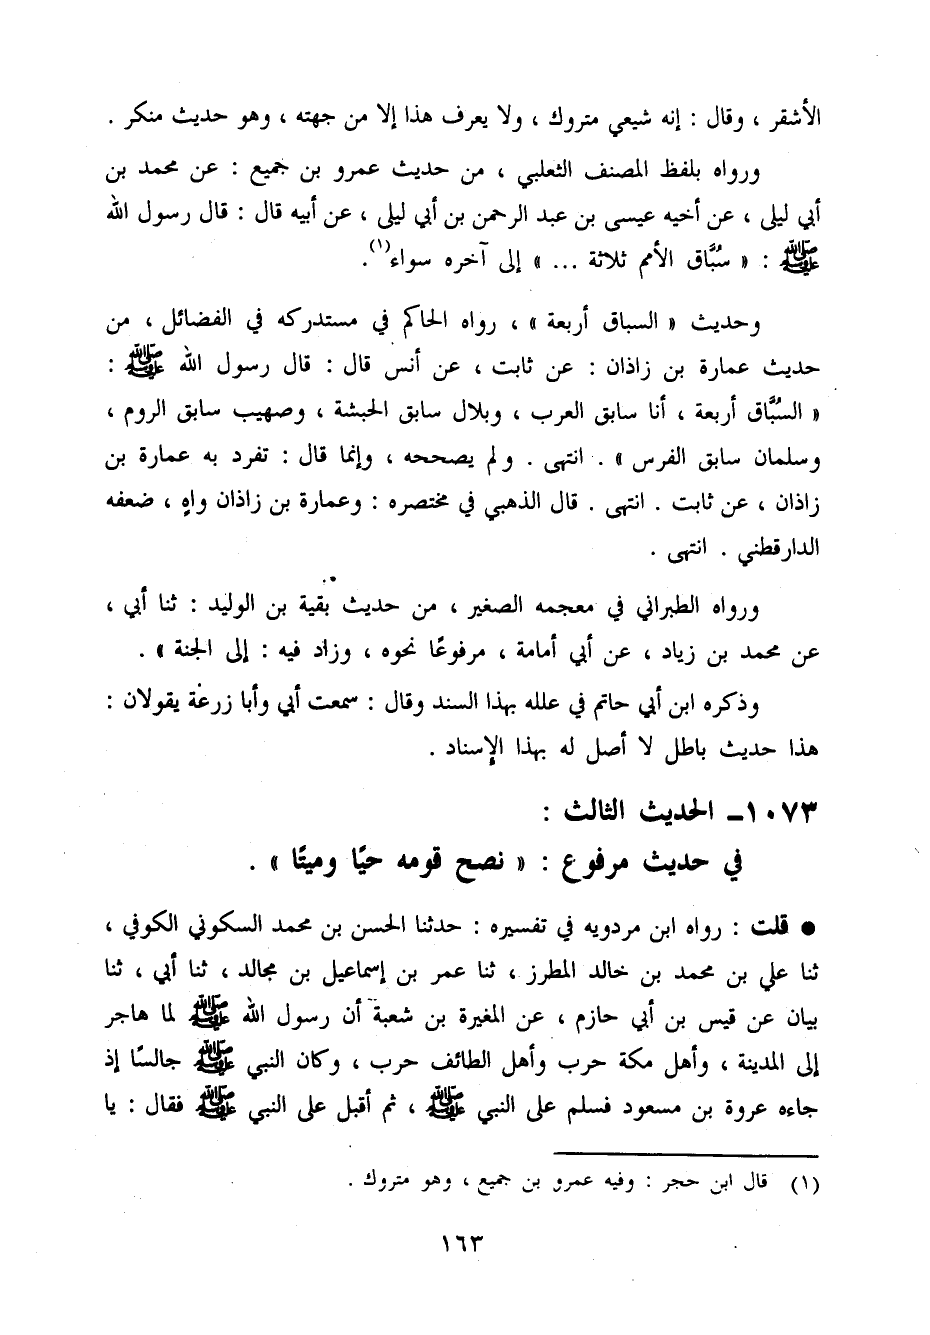 الأشقر ، وقال : إنه شيعي متروك ، ولا يعرف هذا إلا من جهته ، وهو حديث منكر .
ورواه بلفظ المصنف الثعلبي ، من حديث عمرو بن جميع : عن محمد بن
أبي ليلى ، عن أخيه عيسى بن عبد الرحمن بن أبي ليلى ، عن أبيه قال : قال رسول الله
ﷺ : « سُبَّاق الأمم ثلاثة ... » إلى آخره سواء(١).
وحديث « السباق أربعة » ، رواه الحاكم في مستدركه في الفضائل ، من
حديث عمارة بن زاذان : عن ثابت ، عن أنس قال : قال رسول الله ﷺ :
« السُّبَّاق أربعة ، أنا سابق العرب ، وبلال سابق الحبشة ، وصهيب سابق الروم ،
وسلمان سابق الفرس » . انتهى . ولم يصححه ، وإنما قال : تفرد به عمارة بن
زاذان ، عن ثابت . انتهى . قال الذهبي في مختصره : وعمارة بن زاذان واهٍ ، ضعفه
الدارقطني . انتهى .
ورواه الطبراني في معجمه الصغير ، من حديث بقية بن الوليد : ثنا أبي ،
عن محمد بن زياد ، عن أبي أمامة ، مرفوعًا نحوه ، وزاد فيه : إلى الجنة » .
وذكره ابن أبي حاتم في علله بهذا السند وقال : سمعت أبي وأبا زرعة يقولان :
هذا حديث باطل لا أصل له بهذا الإسناد .
١٠٧٣ـ الحديث الثالث :
في حديث مرفوع : « نصح قومه حيًا وميتًا » .
● قلت : رواه ابن مردويه في تفسيره : حدثنا الحسن بن محمد السكوني الكوفي ،
ثنا علي بن محمد بن خالد المطرز ، ثنا عمر بن إسماعيل بن مجالد ، ثنا أبي ، ثنا
بيان عن قيس بن أبي حازم ، عن المغيرة بن شعبة أن رسول الله ﷺ لما هاجر
إلى المدينة ، وأهل مكة حرب وأهل الطائف حرب ، وكان النبي ﷺ جالسًا إذ
جاءه عروة بن مسعود فسلم على النبي ﷺ ، ثم أقبل على النبي ﷺ فقال : يا
(١) قال ابن حجر : وفيه عمرو بن جميع ، وهو متروك .
١٦٣